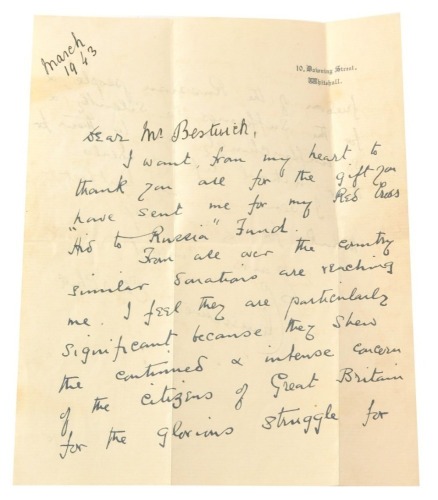 March
1943
10, Downing Street,
Whitehall.
Dear Mr Bestwick,
I want from my heart to
thank you all for the gift you
have sent me for my Red Cross
"Aid to Russia" Fund.
From all over the country
similar donations are reaching
me. I feel they are particularly
significant because they shew
the continued & intense concern
of the citizens of Great Britain
for the glorious struggle for